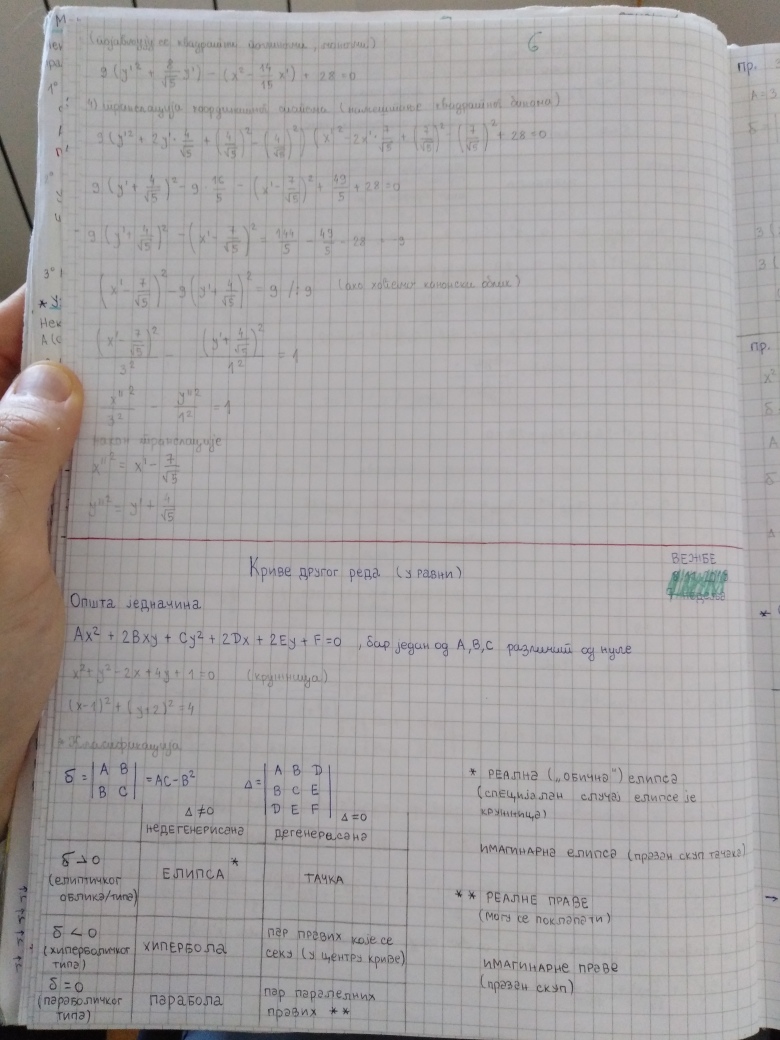 6
9(y'² + 8/√5 y') - (x'² - 14/√5 x') + 28 = 0
4) транслација координатног система (намештање квадратног бинома)
9(y'² + 2y'·4/√5 + (4/√5)² - (4/√5)²) - (x'² - 2x'·7/√5 + (7/√5)² - (7/√5)²) + 28 = 0
9(y' + 4/√5)² - 9·16/5 - (x' - 7/√5)² + 49/5 + 28 = 0
9(y' + 4/√5)² - (x' - 7/√5)² = 144/5 - 49/5 - 28 = -9
(x' - 7/√5)² - 9(y' + 4/√5)² = 9 /:9 (ако хоћемо канонски облик)
(x' - 7/√5)²/3² - (y' + 4/√5)²/1² = 1
x''²/3² - y''²/1² = 1
након транслације
x''² = x' - 7/√5
y''² = y' + 4/√5
ВЕЖБЕ
Криве другог реда (у равни)
Општа једначина
Ax² + 2Bxy + Cy² + 2Dx + 2Ey + F = 0 , бар један од A, B, C различит од нуле
x² + y² - 2x + 4y + 1 = 0 (кружница)
(x-1)² + (y+2)² = 4
Класификација
δ = |A B; B C| = AC - B² Δ = |A B D; B C E; D E F|
Δ ≠ 0 недегенерисана
Δ = 0 дегенерисана
δ > 0 (елиптичког облика/типа) ЕЛИПСА * ТАЧКА
δ < 0 (хиперболичког типа) ХИПЕРБОЛА пар правих које се секу (у центру криве)
δ = 0 (параболичког типа) ПАРАБОЛА пар паралелних правих **
* РЕАЛНА („ОБИЧНА“) ЕЛИПСА
(СПЕЦИЈАЛАН СЛУЧАЈ ЕЛИПСЕ ЈЕ
КРУЖНИЦА)
ИМАГИНАРНА ЕЛИПСА (ПРАЗАН СКУП ТАЧАКА)
** РЕАЛНЕ ПРАВЕ
(МОГУ СЕ ПОКЛАПАТИ)
ИМАГИНАРНЕ ПРАВЕ
(ПРАЗАН СКУП)
ПР.
ПР.